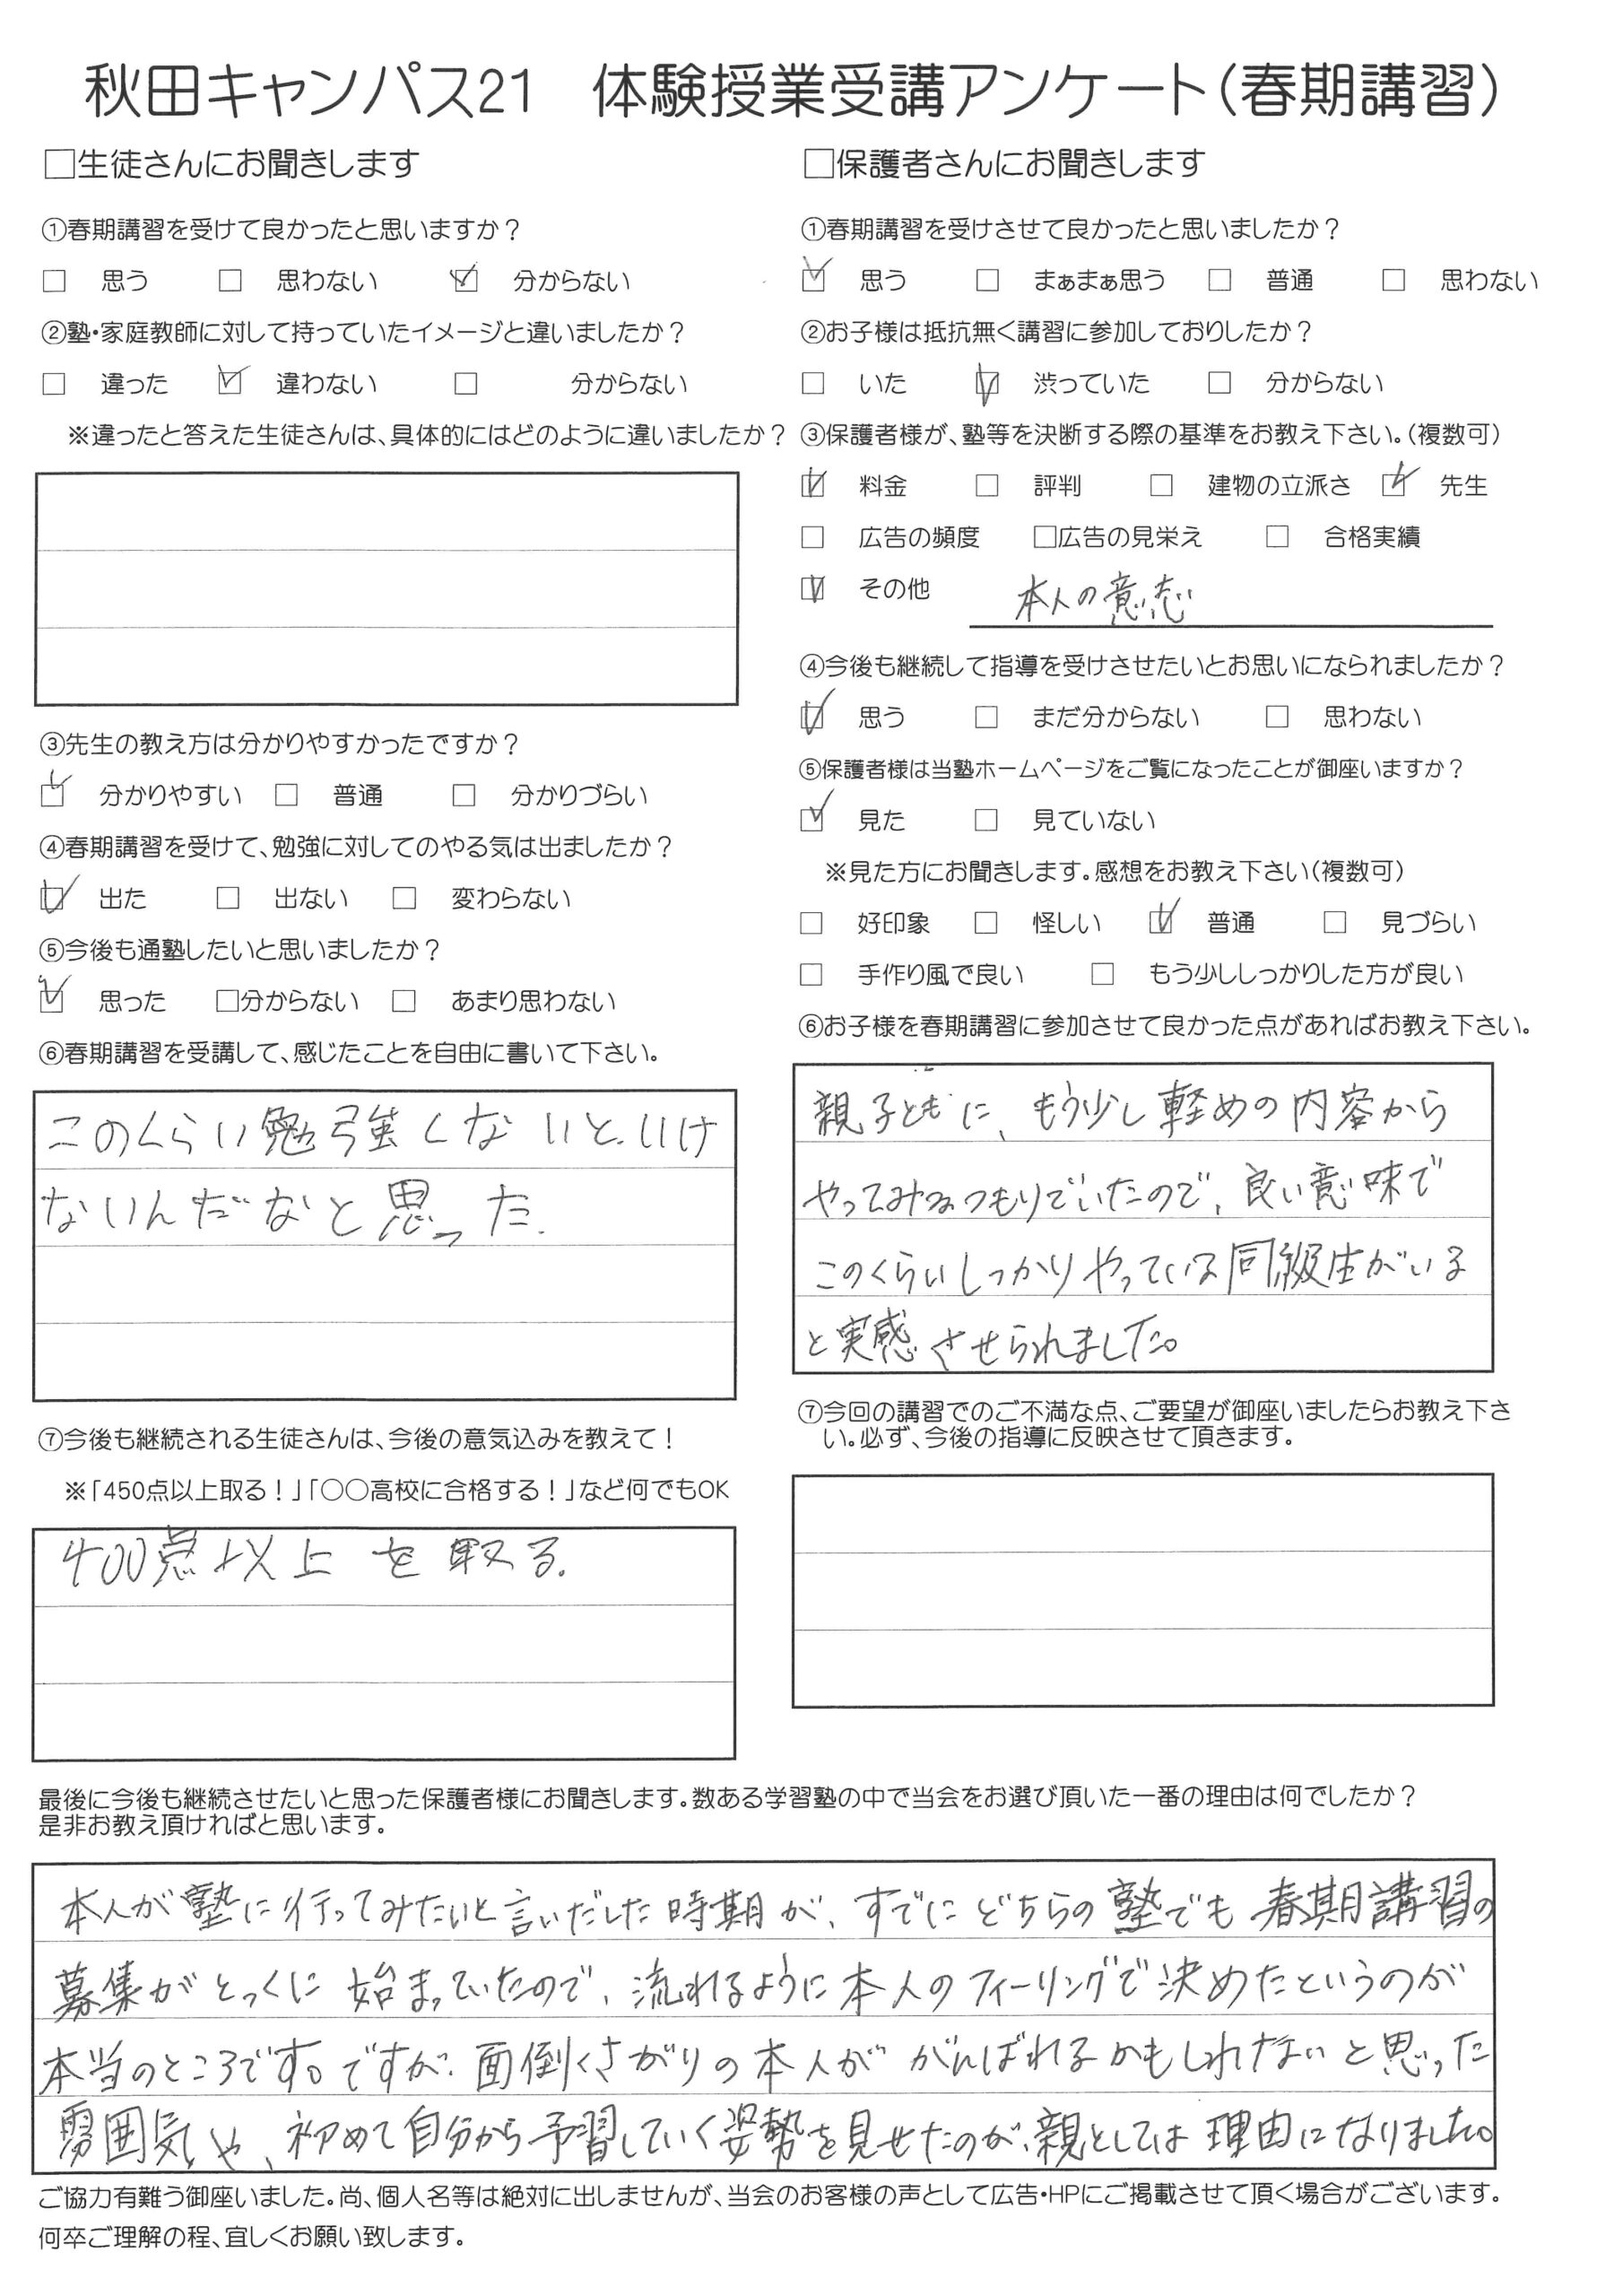 秋田キャンパス21　体験授業受講アンケート（春期講習）
□生徒さんにお聞きします
①春期講習を受けて良かったと思いますか？
□　思う　□　思わない　☑　分からない
②塾・家庭教師に対して持っていたイメージと違いましたか？
□　違った　☑　違わない　□　分からない
※違ったと答えた生徒さんは、具体的にはどのように違いましたか？
③先生の教え方は分かりやすかったですか？
☑　分かりやすい　□　普通　□　分かりづらい
④春期講習を受けて、勉強に対してのやる気は出ましたか？
☑　出た　□　出ない　□　変わらない
⑤今後も通塾したいと思いましたか？
☑　思った　□分からない　□　あまり思わない
⑥春期講習を受講して、感じたことを自由に書いて下さい。
このくらい勉強しないといけ
ないんだなと思った.
⑦今後も継続される生徒さんは、今後の意気込みを教えて！
※「450点以上取る！」「○○高校に合格する！」など何でもOK
400点以上を取る.
□保護者さんにお聞きします
①春期講習を受けさせて良かったと思いましたか？
☑　思う　□　まぁまぁ思う　□　普通　□　思わない
②お子様は抵抗無く講習に参加しておりしたか？
□　いた　☑　渋っていた　□　分からない
③保護者様が、塾等を決断する際の基準をお教え下さい。（複数可）
☑　料金　□　評判　□　建物の立派さ　☑　先生
□　広告の頻度　□広告の見栄え　□　合格実績
☑　その他　本人の意志
④今後も継続して指導を受けさせたいとお思いになられましたか？
☑　思う　□　まだ分からない　□　思わない
⑤保護者様は当塾ホームページをご覧になったことが御座いますか？
☑　見た　□　見ていない
※見た方にお聞きします。感想をお教え下さい（複数可）
□　好印象　□　怪しい　☑　普通　□　見づらい
□　手作り風で良い　□　もう少ししっかりした方が良い
⑥お子様を春期講習に参加させて良かった点があればお教え下さい。
親子ともに、もう少し軽めの内容から
やってみるつもりでいたので、良い意味で
このくらいしっかりやっている同級生がいる
と実感させられました。
⑦今回の講習でのご不満な点、ご要望が御座いましたらお教え下さ
い。必ず、今後の指導に反映させて頂きます。
最後に今後も継続させたいと思った保護者様にお聞きします。数ある学習塾の中で当会をお選び頂いた一番の理由は何でしたか？
是非お教え頂ければと思います。
本人が塾に行ってみたいと言いだした時期が、すでにどちらの塾でも春期講習の
募集がとっくに始まっていたので、流れるように本人のフィーリングで決めたというのが
本当のところです。ですが、面倒くさがりの本人ががんばれるかもしれないと思った
雰囲気や、初めて自分から予習していく姿勢を見せたのが、親としては理由になりました。
ご協力有難う御座いました。尚、個人名等は絶対に出しませんが、当会のお客様の声として広告・HPにご掲載させて頂く場合がございます。
何卒ご理解の程、宜しくお願い致します。